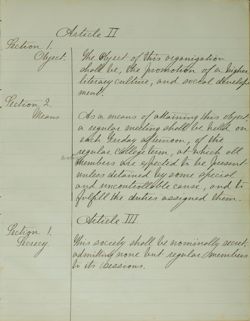 Article II
Section 1.
Object. The Object of this organization
shall be, the promotion of a higher
literary culture, and social develop-
ment.
Section 2.
Means As a means of attaining this object,
a regular meeting shall be held, on
each Friday afternoon, of the
regular college term, at which all
members are expected to be present
unless detained by some special
and uncontrollable cause, and to
fulfill the duties assigned them.
Article III.
Section 1.
Secrecy. This society shall be nominally secret,
admitting none but regular members
to its sessions.